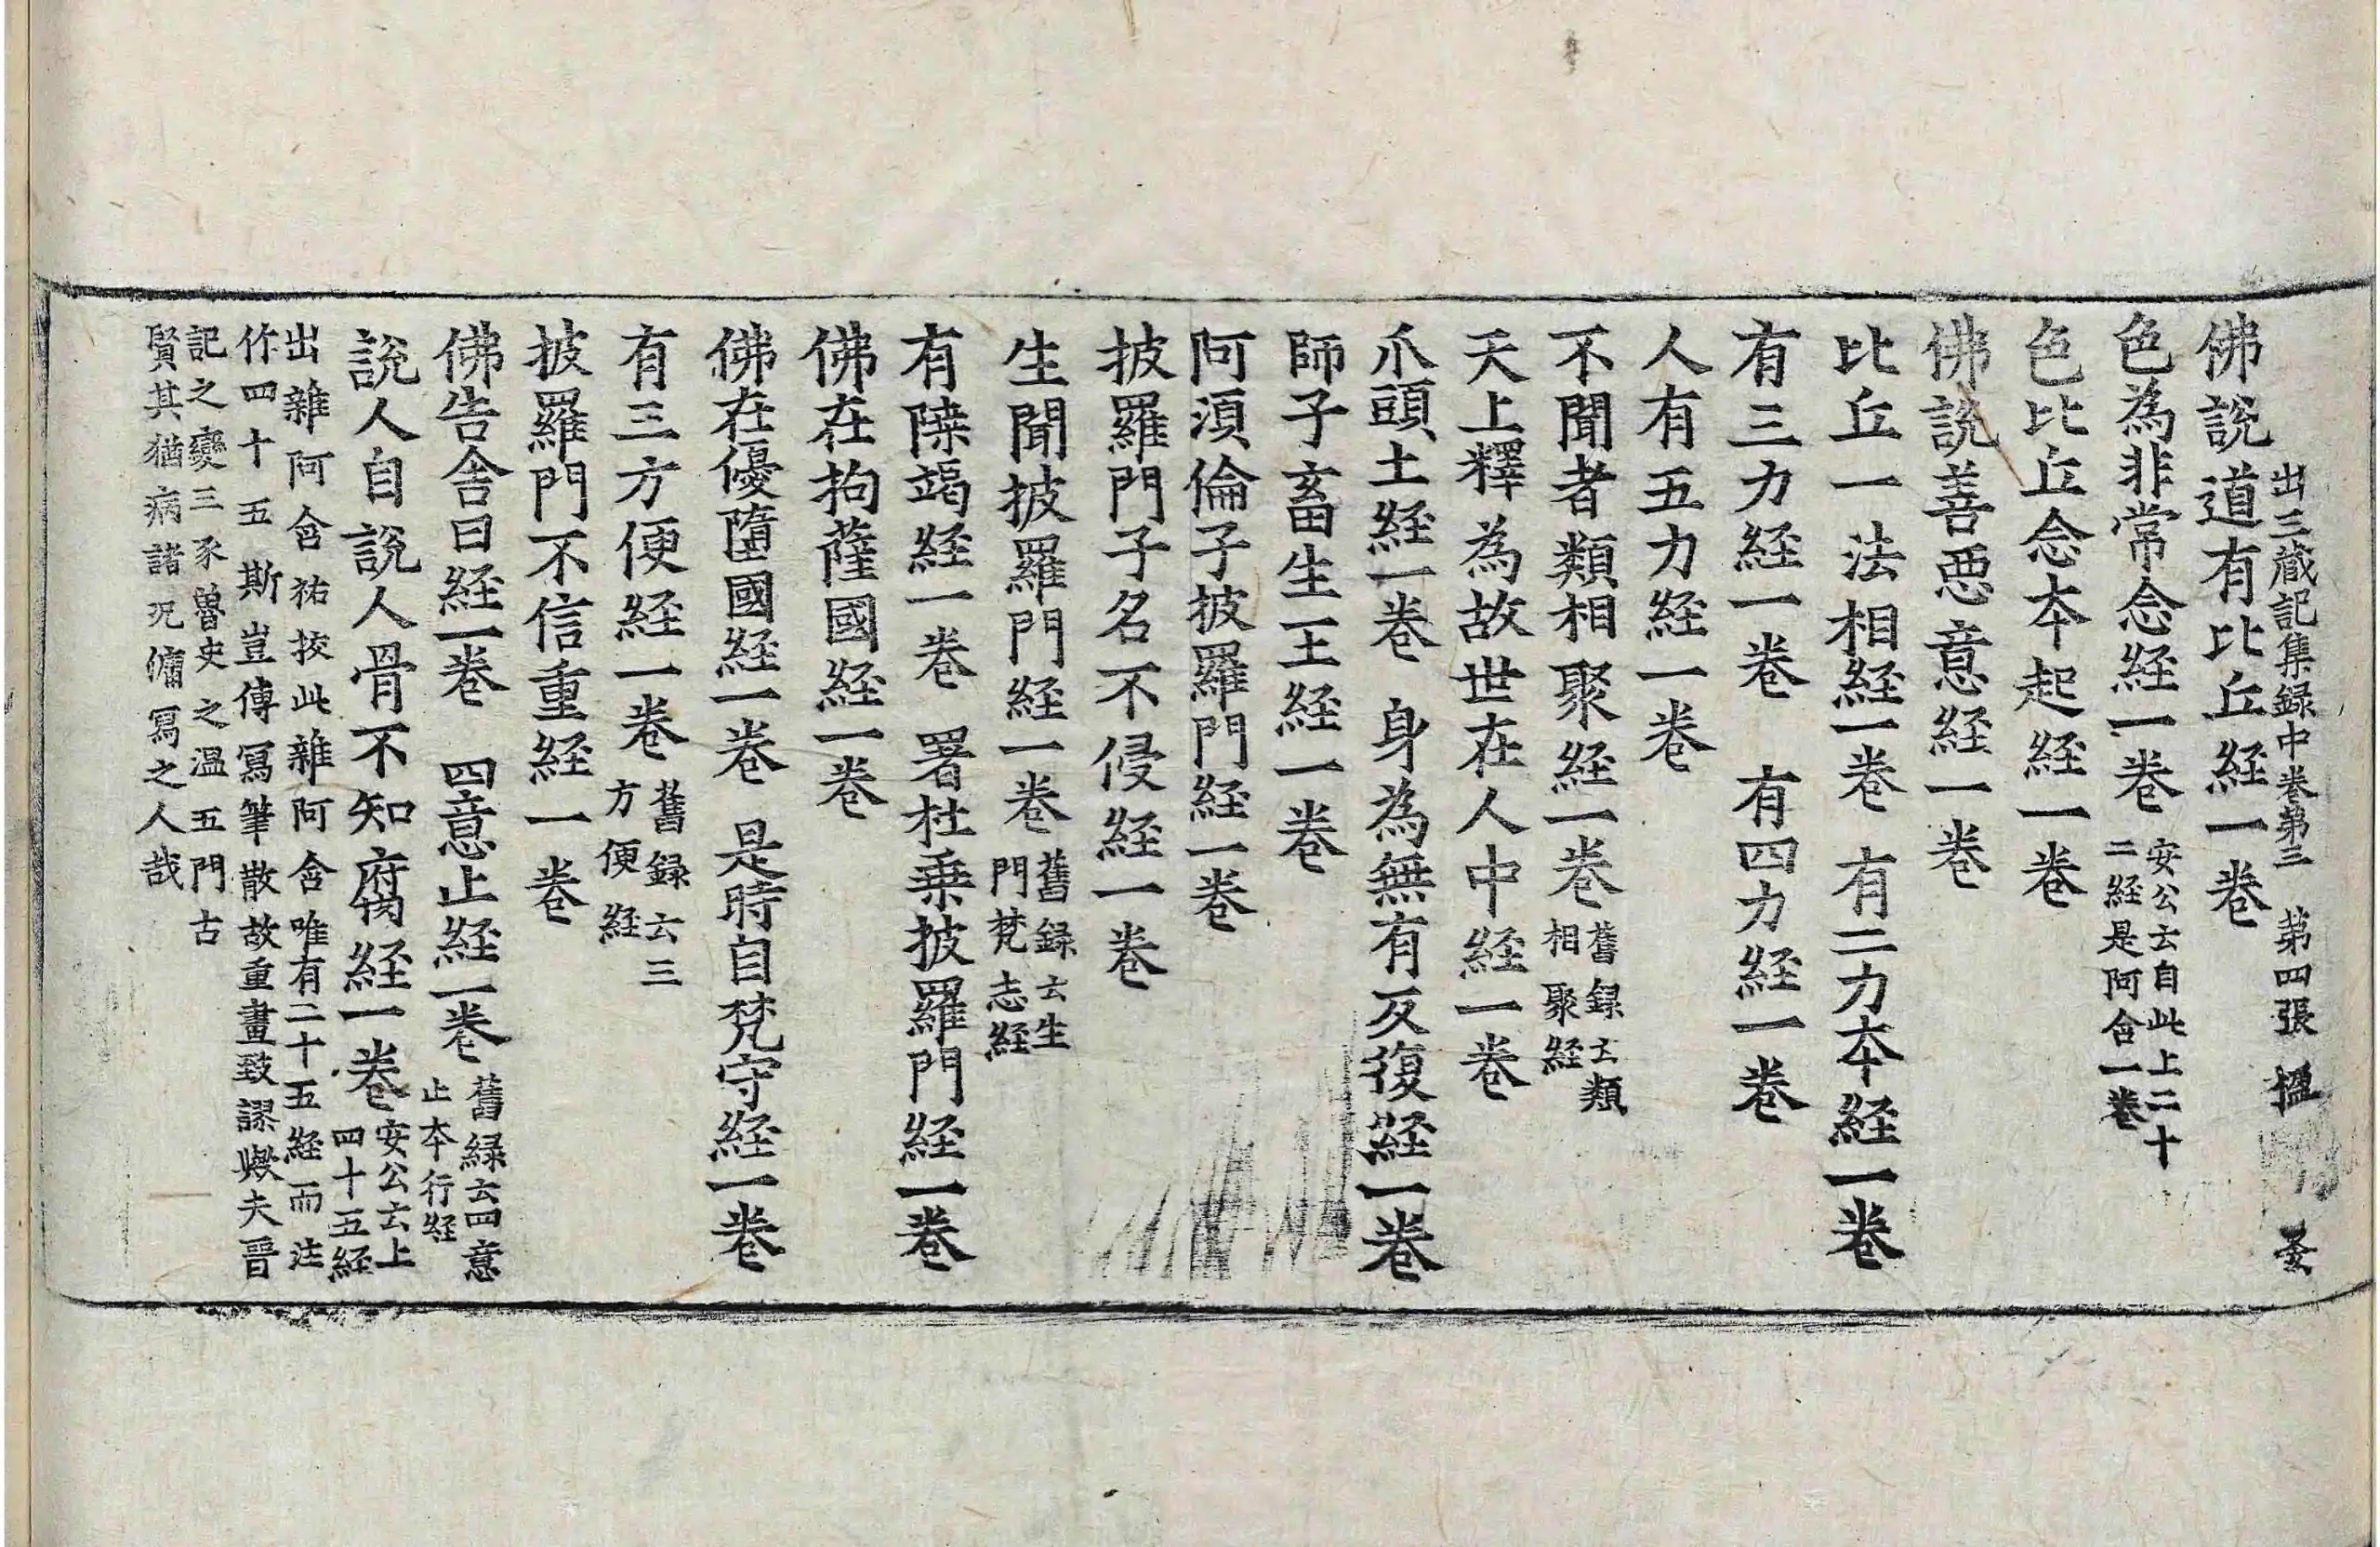 出三藏記集録中卷第三 第四張 㮼
佛說道有比丘經一卷
色為非常念經一卷 安公云自此上二十
二經是阿含一卷
色比丘念夲起經一卷
佛說善惡意經一卷
比丘一法相經一卷 有二力夲經一卷
有三力經一卷 有四力經一卷
人有五力經一卷
不聞者類相聚經一卷 舊録云類
相聚經
天上釋為故世在人中經一卷
爪頭土經一卷 身為無有反復經一卷
師子畜生王經一卷
阿湏倫子披羅門經一卷
披羅門子名不侵經一卷
生聞披羅門經一卷 舊録云生
門梵志經
有𨻶竭經一卷 署杜乗披羅門經一卷
佛在拘薩國經一卷
佛在優墮國經一卷 是時自梵守經一卷
有三方便經一卷 舊録云三
方便經
披羅門不信重經一卷
佛告舍曰經一卷 四意止經一卷 舊録云四意
止夲行經
說人自說人骨不知腐經一卷 安公云上
四十五經
出雜阿含祐挍此雜阿含唯有二十五經而注
作四十五斯豈傳寫筆散故重畫致謬歟夫晉
記之變三豕魯史之温五門古
賢其猶病諸况傭寫之人哉